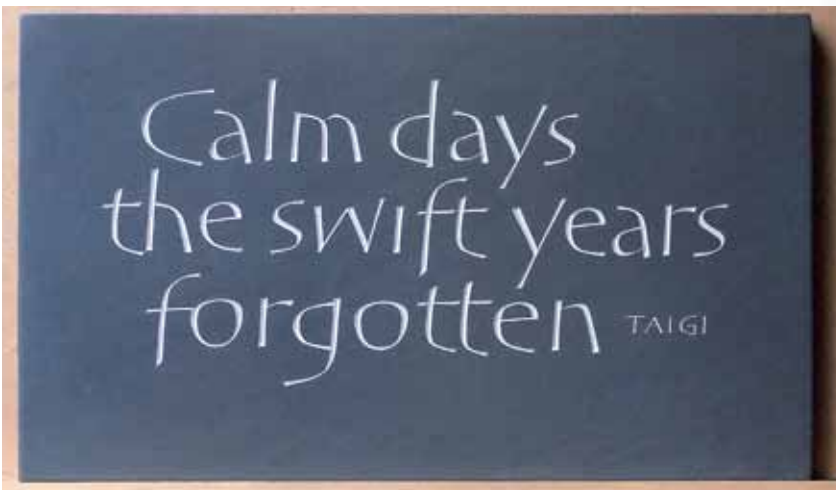 Calm days
the swift years
forgotten TAIGI